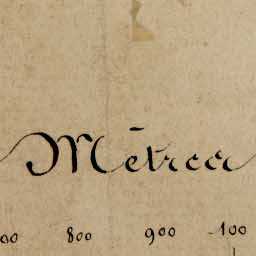 Mètres
00 800 900 100